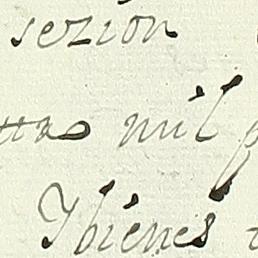 sezion
mil
Ybienes